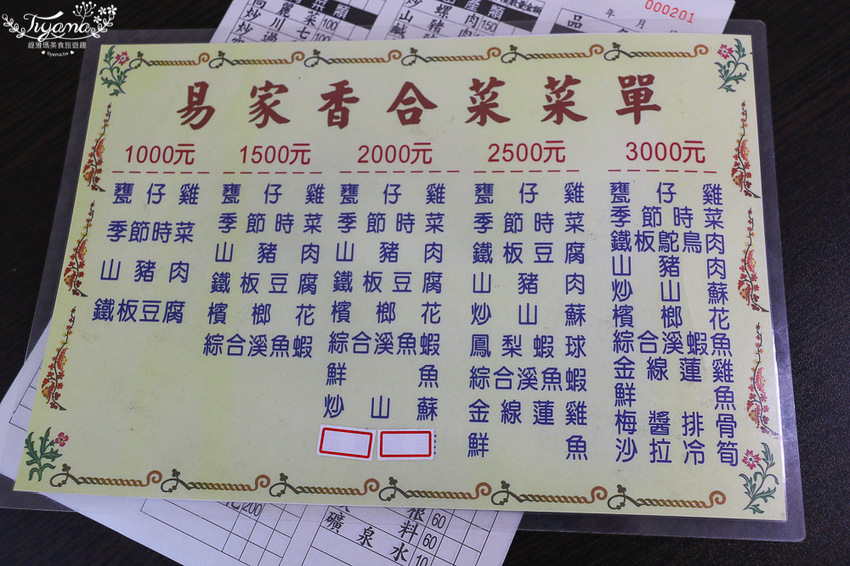 Tiyana
緹雅瑪美食旅遊趣
Tiyama.tw
年 月
000201
品
易家香合菜菜單
1000元
甕仔雞
季節時菜
山豬肉
鐵板豆腐
1500元
甕仔雞
季節時菜
山豬肉
鐵板豆腐
檳榔花
綜合溪魚蝦
2000元
甕仔雞
季節時菜
山豬肉
鐵板豆腐
檳榔花
綜合溪魚蝦
鮮魚
炒山蘇
2500元
甕仔雞
季節時菜
鐵板豆腐
山豬肉
炒山蘇
鳳梨蝦球
綜合溪魚蝦
金線蓮雞
鮮魚
3000元
甕仔雞
季節時菜
鐵板鴕鳥肉
山豬肉
炒山蘇
檳榔花
綜合溪蝦魚
金線蓮雞
鮮魚
梅醬排骨
沙拉冷筍
200
60
料 60
礦泉水 10